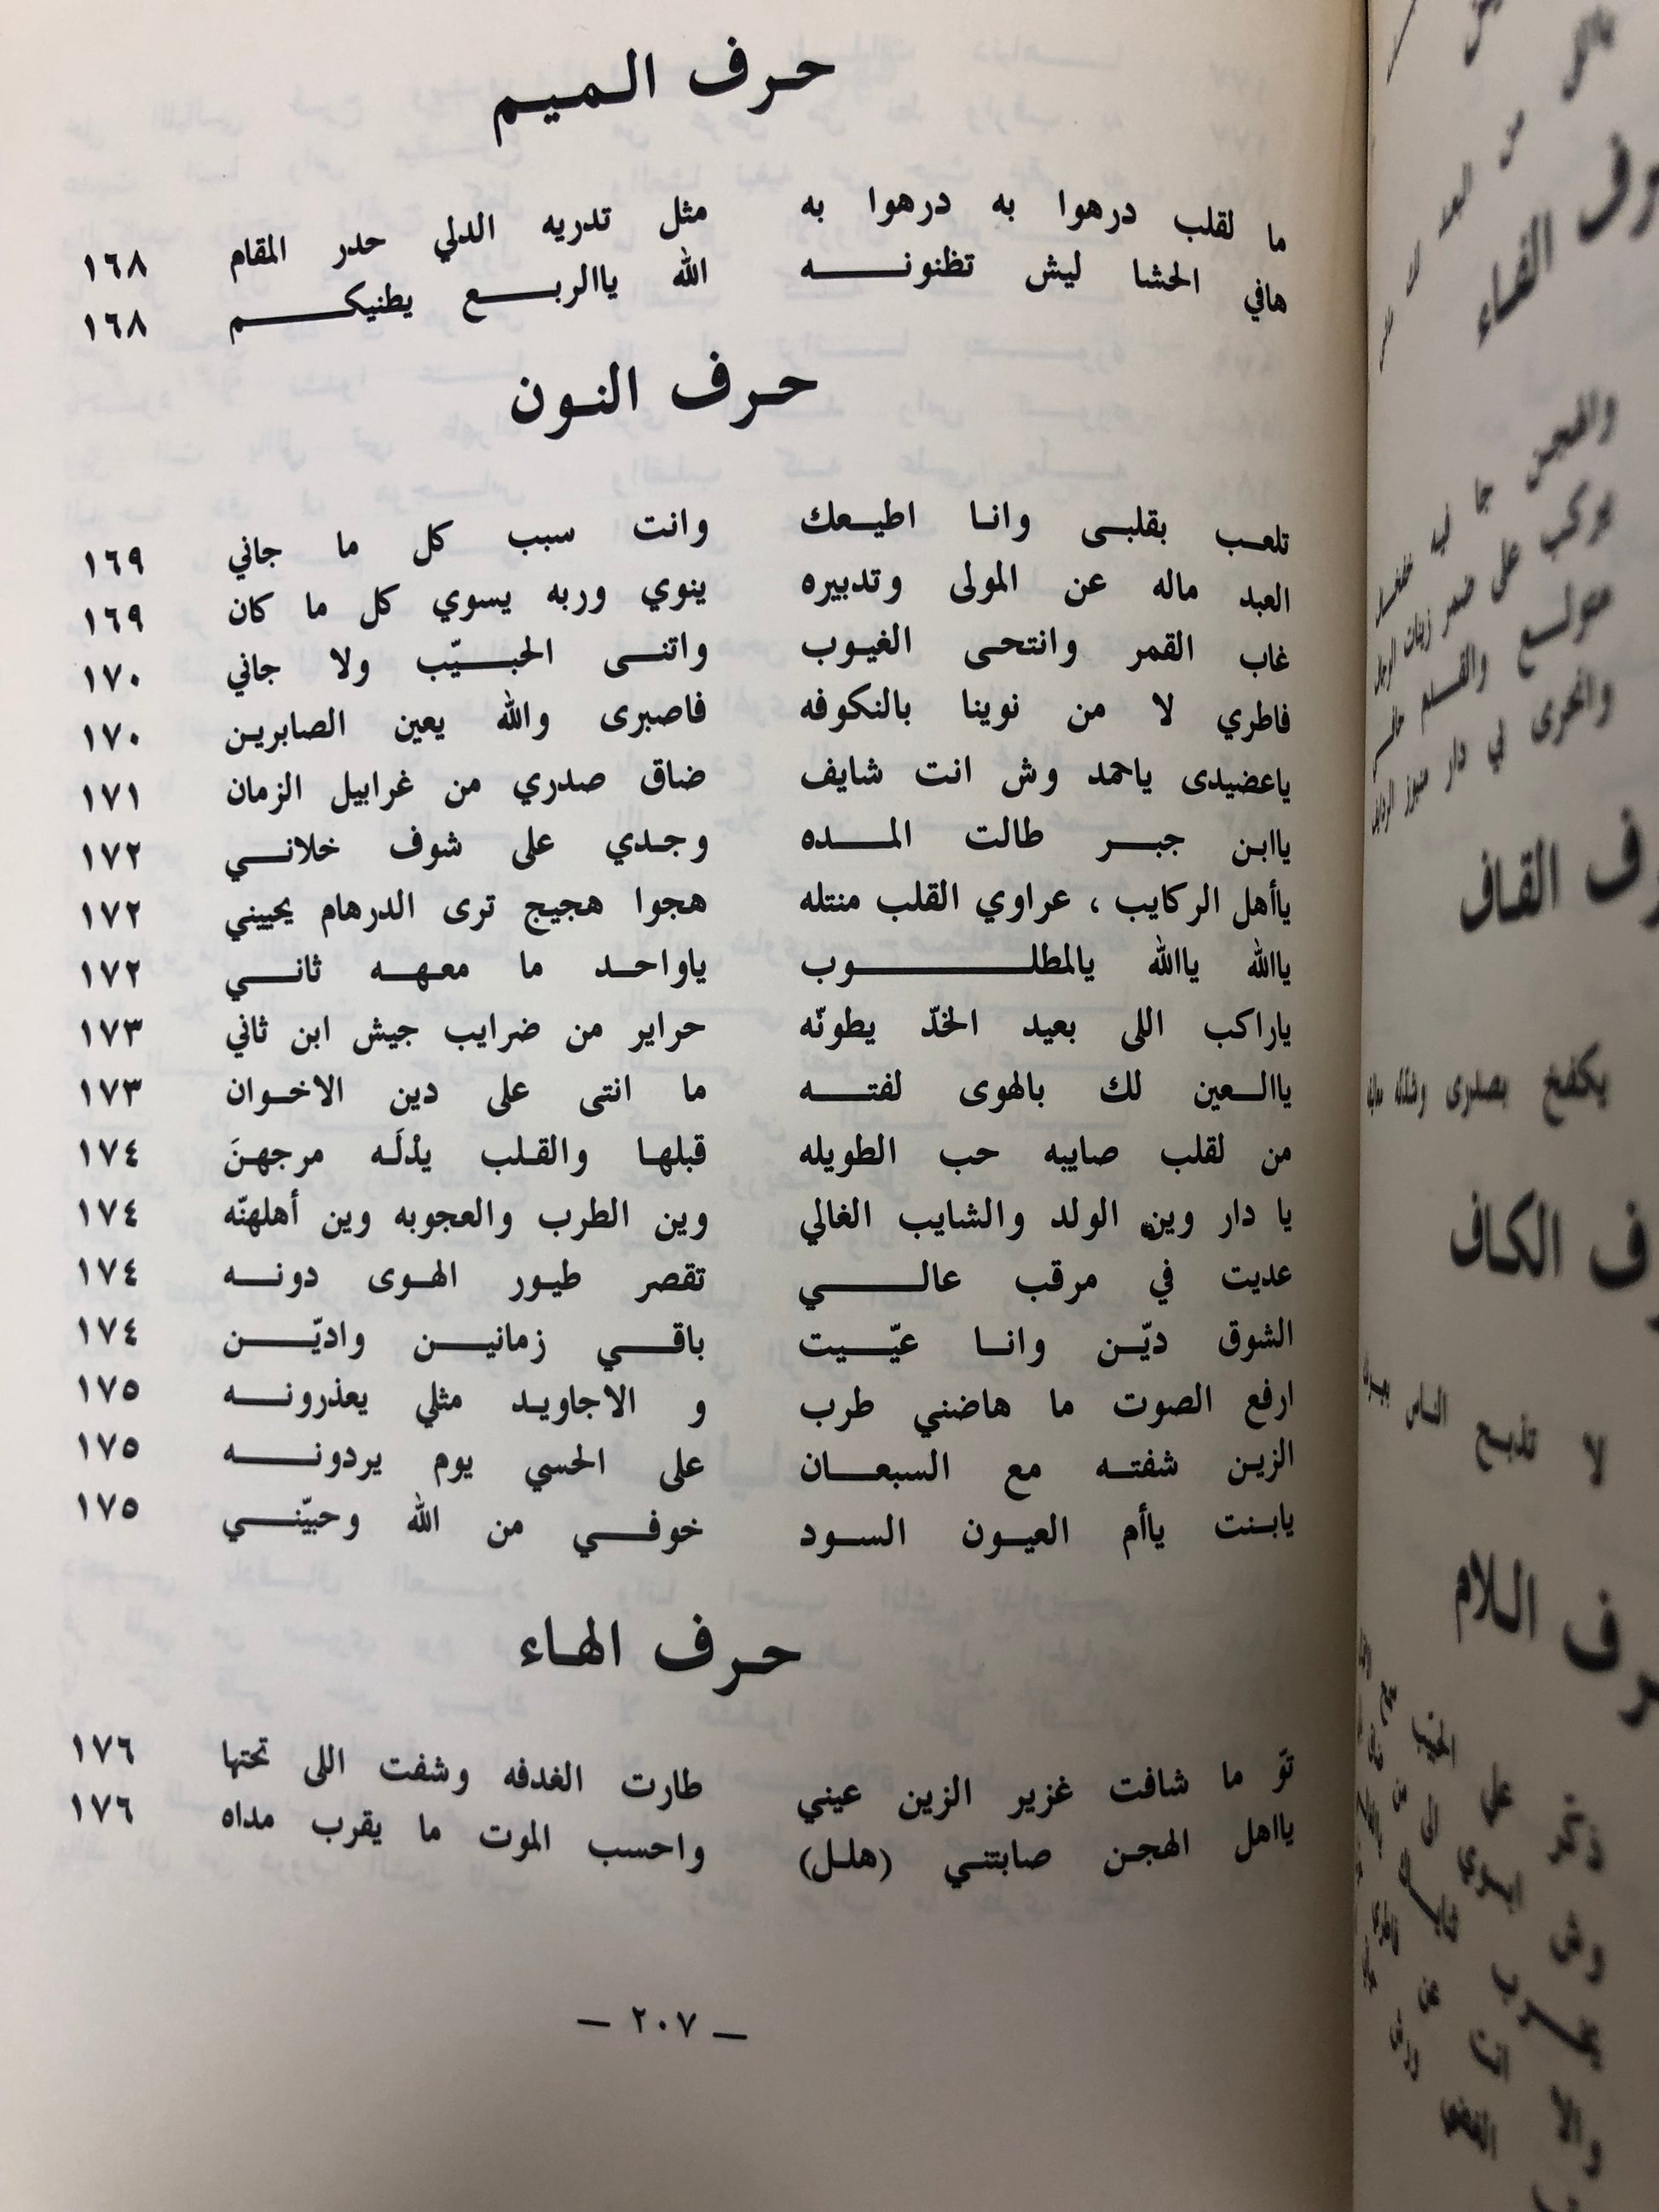 حرف الميم
ما لقلب درهوا به درهوا به مثل تدريه الدلي حدر المقام ١٦٨
هافي الحشا ليش تظنونه الله ياالربع يطنيكم ١٦٨
حرف النون
تلعب بقلبى وانا اطيعك وانت سبب كل ما جاني ١٦٩
العبد ماله عن المولى وتدبيره ينوي وربه يسوي كل ما كان ١٦٩
غاب القمر وانتحى الغيوب واتنى الحبيّب ولا جاني ١٧٠
فاطري لا من نوينا بالنكوفه فاصبرى والله يعين الصابرين ١٧٠
ياعضيدى ياحمد وش انت شايف ضاق صدري من غرابيل الزمان ١٧١
ياابن جبر طالت المده وجدي على شوف خلاني ١٧٢
ياأهل الركايب ، عراوي القلب منتله هجوا هجيج ترى الدرهام يحييني ١٧٢
ياالله ياالله يالمطلوب ياواحد ما معهه ثاني ١٧٢
ياراكب اللى بعيد الخدّ يطونّه حراير من ضرايب جيش ابن ثاني ١٧٣
ياالعين لك بالهوى لفته ما انتى على دين الاخوان ١٧٣
من لقلب صايبه حب الطويله قبلها والقلب يذلَه مرجهنَ ١٧٤
يا دار وين الولد والشايب الغالي وين الطرب والعجوبه وين أهلهنّه ١٧٤
عديت في مرقب عالي تقصر طيور الهوى دونه ١٧٤
الشوق ديّن وانا عيّيت باقي زمانين واديّن ١٧٤
ارفع الصوت ما هاضني طرب و الاجاويد مثلي يعذرونه ١٧٥
الزين شفته مع السبعان على الحسي يوم يردونه ١٧٥
يابنت ياأم العيون السود خوفي من الله وحبيّني ١٧٥
حرف الهاء
توّ ما شافت غزير الزين عيني طارت الغدفه وشفت اللى تحتها ١٧٦
يااهل الهجن صابتني (هلل) واحسب الموت ما يقرب مداه ١٧٦
— ٢٠٧ —
الفاء
القاف
يكفخ بصدرى
ف الكاف
لا تذبح الناس
ف اللام